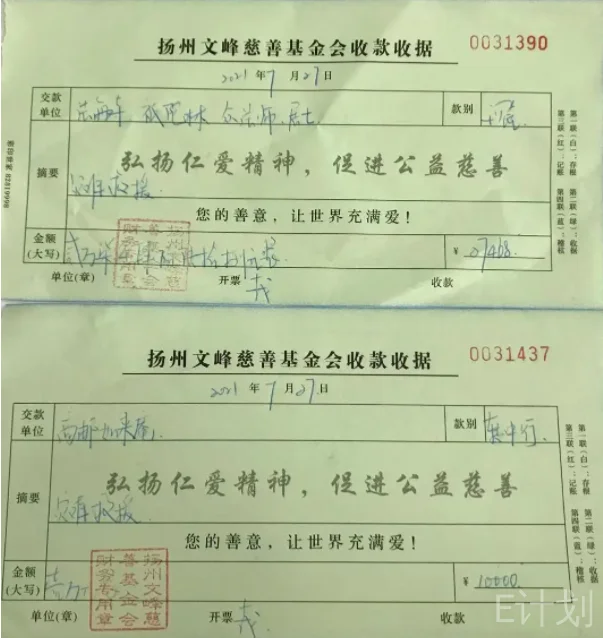 扬州文峰慈善基金会收款收据 0031390
2021 年 7 月 27 日
交款单位 众法师 居士 款别
摘要 弘扬仁爱精神，促进公益慈善
救援
您的善意，让世界充满爱！
金额(大写) ¥ 27468.
扬州文峰慈善基金会财务专用章
单位(章) 开票 收款
第一联(白):存根 第二联(绿):收据
第三联(红):记账 第四联(蓝):稽核
扬州文峰慈善基金会收款收据 0031437
2021 年 7 月 27 日
交款单位 高邮如来庵 款别
摘要 弘扬仁爱精神，促进公益慈善
救援
您的善意，让世界充满爱！
金额(大写) 壹万 ¥ 10000.
扬州文峰慈善基金会财务专用章
单位(章) 开票 收款
第一联(白):存根 第二联(绿):收据
第三联(红):记账 第四联(蓝):稽核
E计划